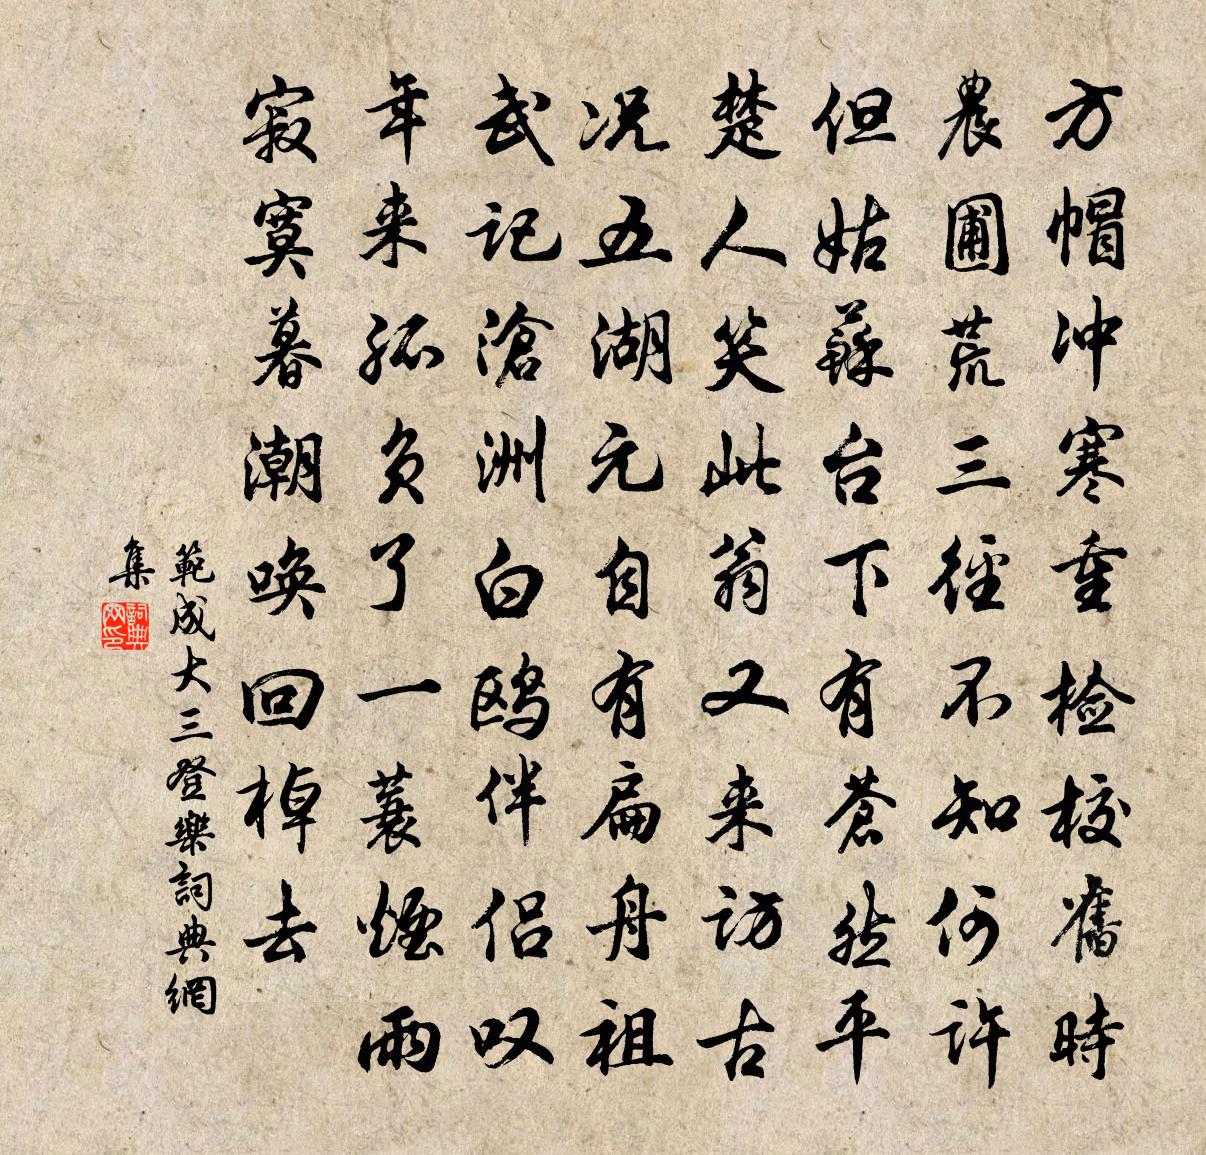 方帽冲寒重检校舊時
農圃荒三徑不知何許
但姑蘇台下有蒼然平
楚人笑此翁又来访古
况五湖元自有扁舟祖
武记滄洲白鸥伴侣叹
年来孤负了一蓑煙雨
寂寞暮潮唤回棹去
範成大三登樂詞典網
集
詞典
网印